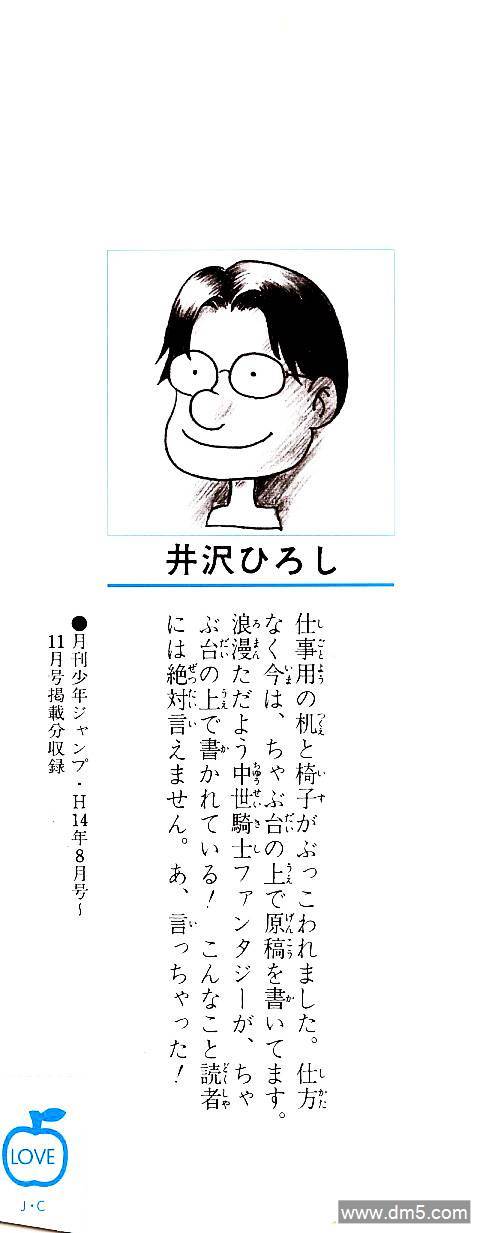 井沢ひろし
仕事用の机と椅子がぶっこわれました。仕方
なく今は、ちゃぶ台の上で原稿を書いてます。
浪漫ただよう中世騎士ファンタジーが、ちゃ
ぶ台の上で書かれている! こんなこと読者
には絶対言えません。あ、言っちゃった!
●月刊少年ジャンプ・H14年8月号~
11月号掲載分収録
LOVE
J・C
www.dm5.com